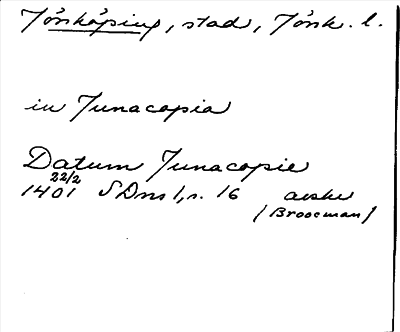 Jönköping, stad, Jönk. l.
in Junacopia
Datum Junacopie
1401 22/2 SDns 1, s. 16 avskr
(Broocman)